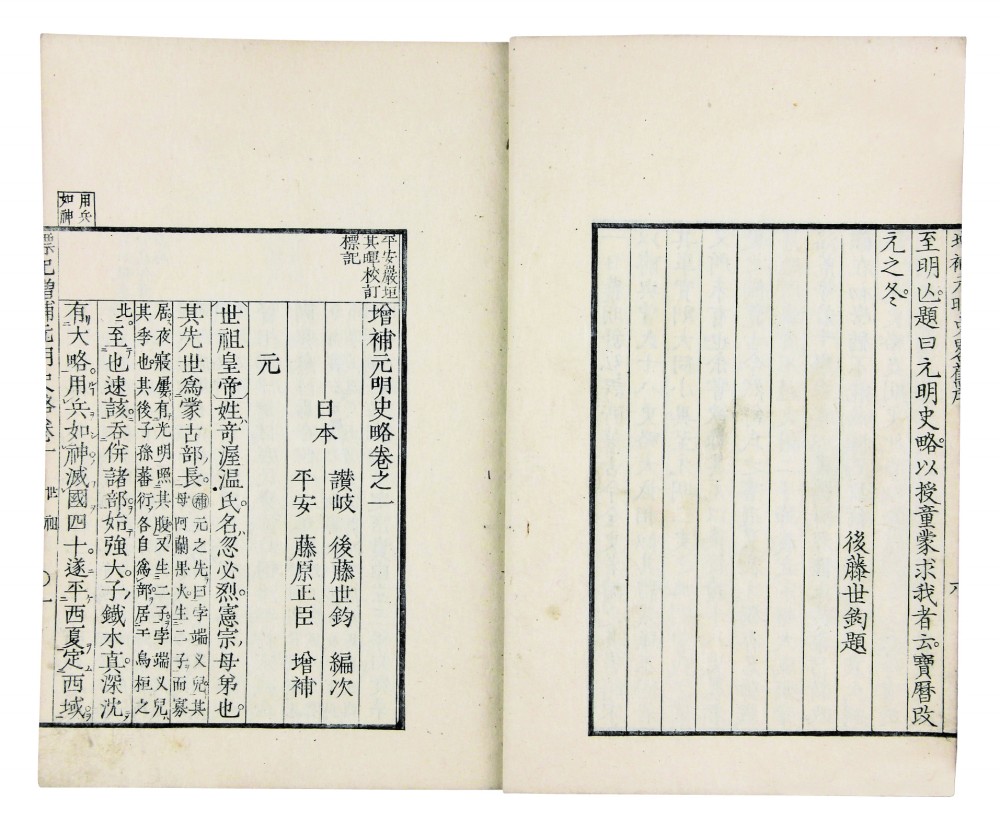 增補元明史畧舊序
至明亾題曰元明史略。以授童蒙求我者云。寶曆改
元之冬。
後藤世鈞題
平安巖垣
其暉校訂
標記
增補元明史略卷之一
日本 讃岐 後藤世鈞 編次
平安 藤原正臣 增補
元
世祖皇帝姓竒渥温氏。名忽必烈。憲宗母弟也。
其先世爲蒙古部長。補元之先曰孛端叉兒其
母阿蘭果火生二子而寡
居。夜寢屢有光明照其腹又生一子孛端叉兒
其季也其後子孫蕃衍各自爲部居于烏桓之
北。至也速該吞併諸部始強大。子鐵木真深沈
用兵
如神
有大略。用兵如神。滅國四十。遂平西夏定西域
標記增補元明史略卷一 世祖 〇一